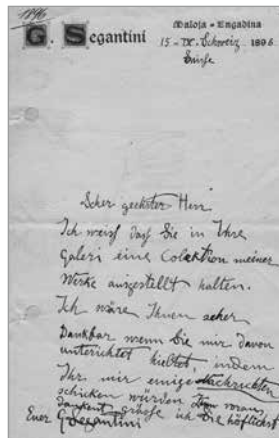 1896
G. Segantini
Maloja - Engadina
15 - IX. Schweiz 1896
Seher geehrter Herr
Ich weiss dass Sie in Ihre
Galeri eine Colektion meiner
Werke ausgestellt halten.
Ich wäre Ihnen seher
Dankbar wenn Sie mir davon
unterichtet hieltet, indem
Ihr mir einige Nachrichten
schicken würden voraus,
dankent, grüsse ich Sie höflichst
Euer G. Segantini